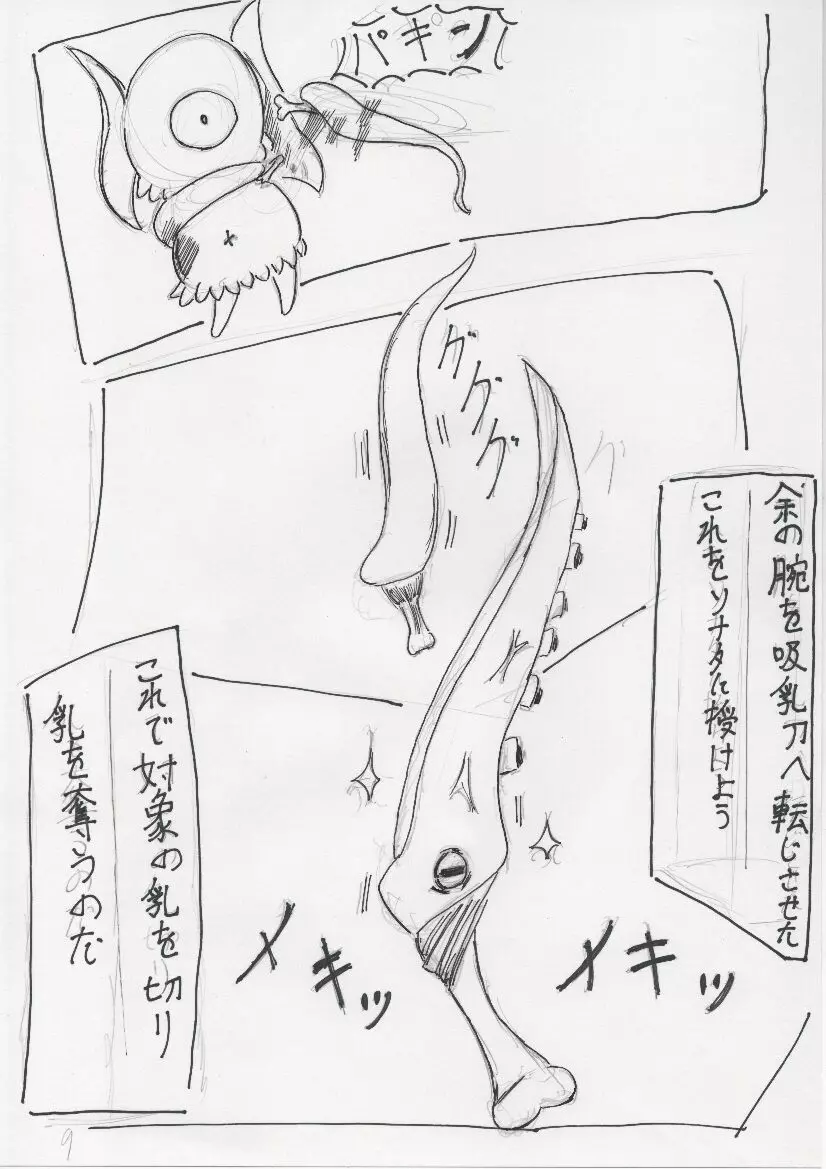 パキン
グググ
グ
余の腕を吸乳刀へ転じさせた
これをソナタに授けよう
メキッ
メキッ
これで対象の乳を切り
乳を奪うのだ
9